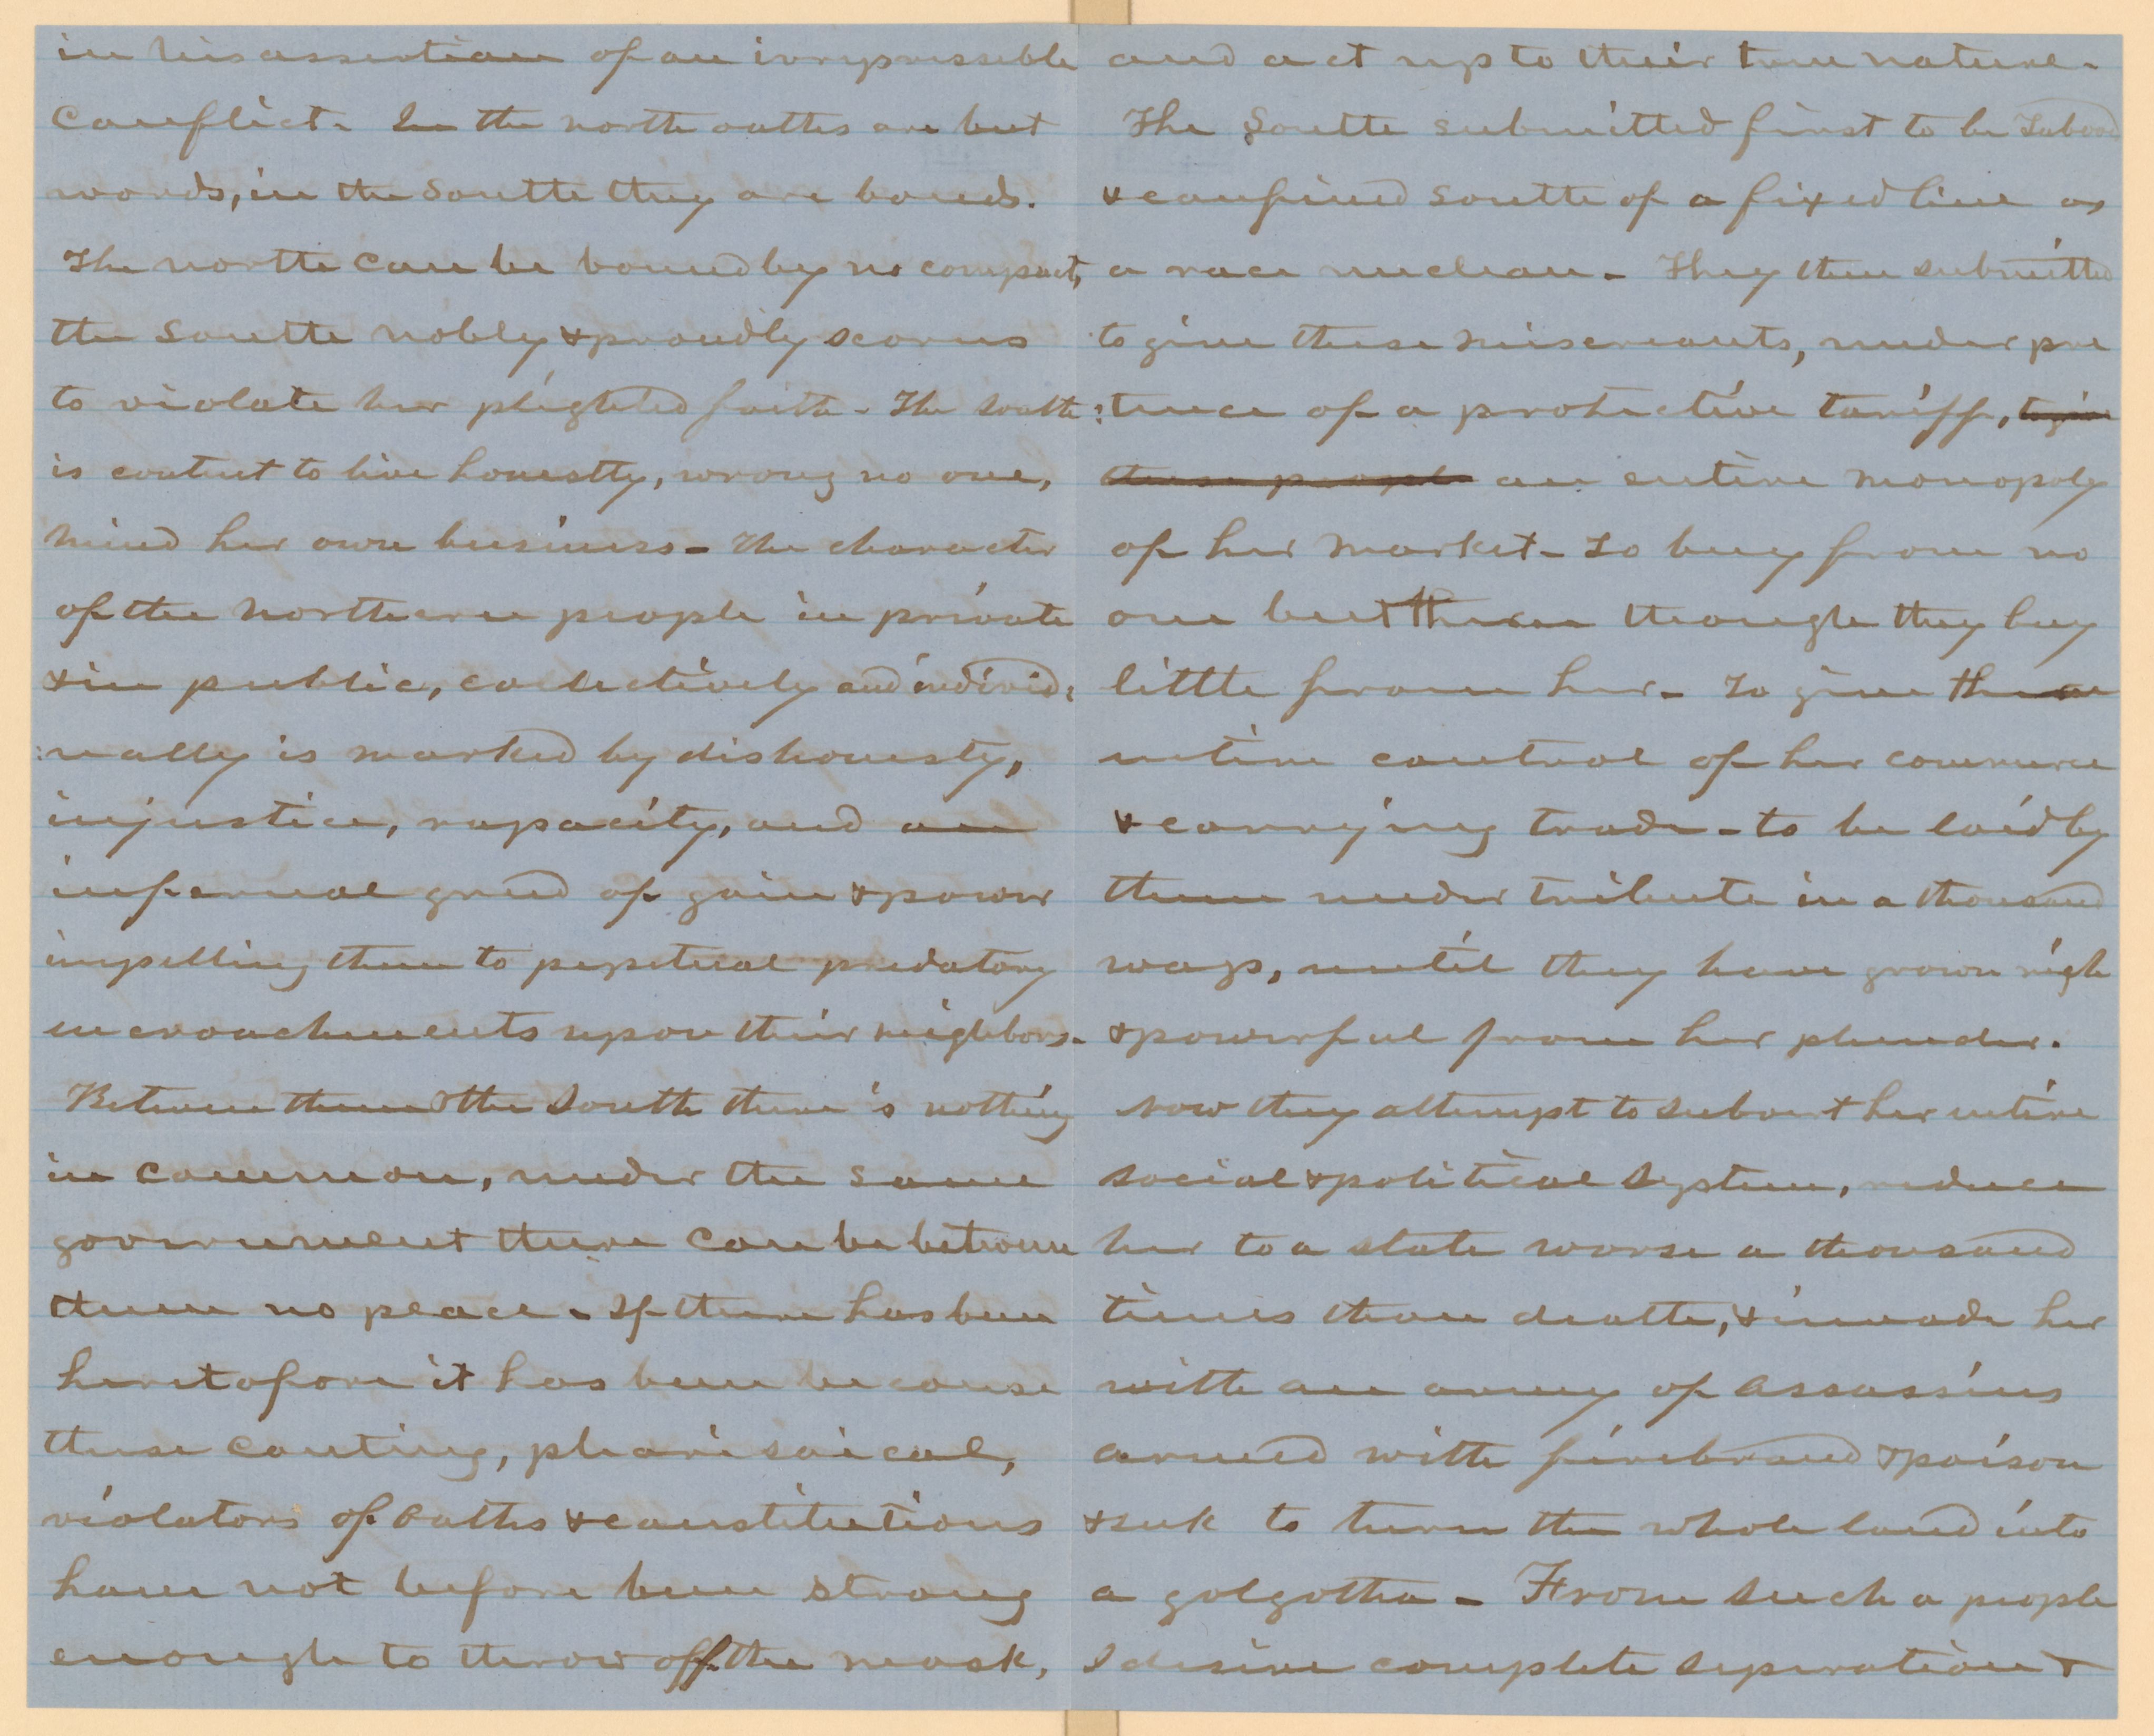 in his assertion of an irrepressible
conflict. In the north oaths are but
words, in the South they are bonds.
The north can be bound by no compact,
the South nobly & proudly scorns
to violate her plighted faith - The South
is content to live honestly, wrong no one,
mind her own business - The character
of the northern people in private
& in public, collectively and individ:
:ually is marked by dishonesty,
injustice, rapacity, and an
infernal greed of gain & power
impelling them to perpetual predatory
encroachments upon their neighbors -
Between them & the South there is nothing
in common, under the same
government there can be between
them no peace - If there has been
heretofore it has been because
these canting, pharisaical,
violators of oaths & constitutions
have not before been strong
enough to throw off the mask,
and act up to their true nature -
The South submitted first to be Tabooed
& confined South of a fixed line as
a race unclean - They then submitted
to give these miscreants, under pre
:tence of a protective tariff, to give
these people an entire monopoly
of her market - To buy from no
one but them though they buy
little from her - To give them
entire control of her commerce
& carrying trade - to be laid by
them under tribute in a thousand
ways, until they have grown rich
& powerful from her plunder.
Now they attempt to subvert her entire
social & political system, reduce
her to a state worse a thousand
times than death, & invade her
with an army of assassins
armed with firebrand & poison
& seek to turn the whole land into
a golgotha - From such a people
I desire complete seperation &